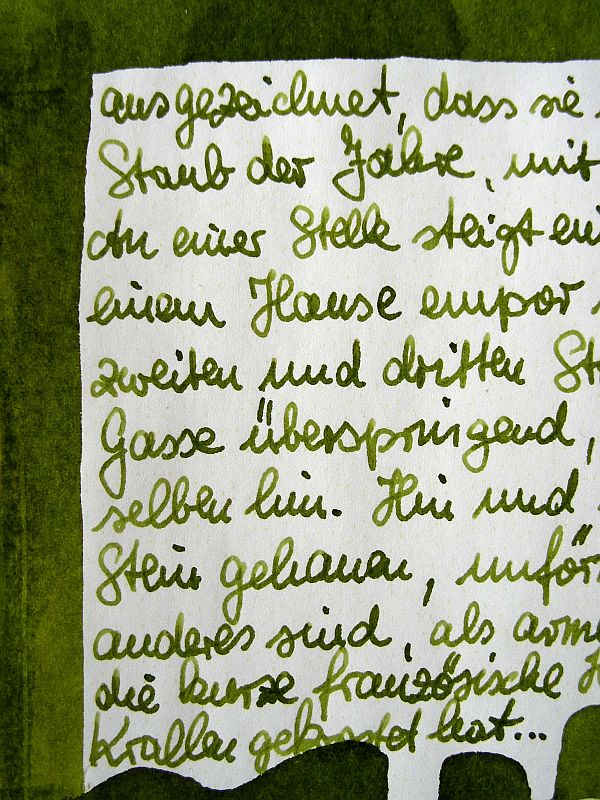 ausgezeichnet, dass sie
Staub der Jahre, mit
An einer Stelle steigt
einem Hause empor
zweiten und dritten
Gasse überspringend,
selben hin. Hin und
Stein gehauen,
anderes sind, als
die kurze französische
Krallen gekostet hat...